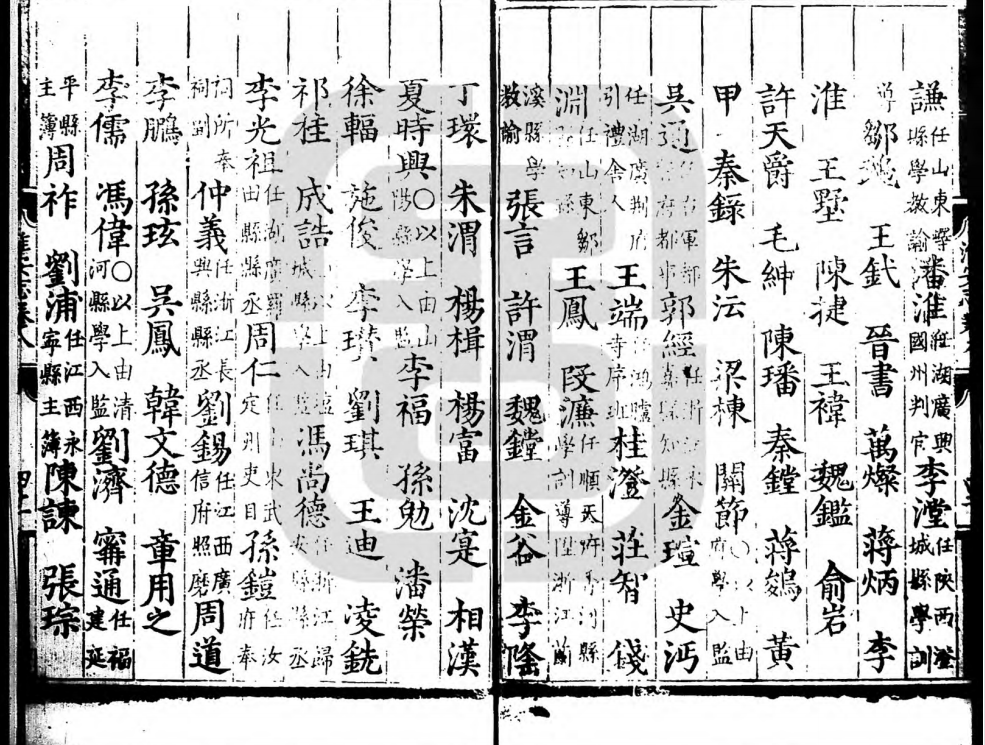 謙任山東嶧縣學教諭 潘淮任湖廣興國州判官 李瀅任陝西澄城縣學訓
導 鄒 王鈇 晉書 萬燦 蔣炳 李
淮 王墅 陳捷 王褘 魏鑑 俞岩
許天爵 毛紳 陳璠 秦鏜 蔣鷃 黃
甲 秦錄 朱沄 梁棟 關節○以上由府學入監
吳 郭經 知縣 金瑄 史沔
任湖廣荆府引禮舍人 王端任鴻臚寺序班 桂澄 莊智 錢
淵任山東鄒縣 王鳳 段濂任順天府 河縣學訓導陞浙江前
溪縣學教諭 張言 許渭 魏鏜 金谷 李隆
丁環 朱渭 楊楫 楊富 沈寔 相漢
夏時興○以上由山陽縣學入監 李福 孫勉 潘榮
徐輻 施俊 李瓚 劉琪 王迪 凌銑
祁桂 成誥○以上由鹽城縣學入監 馮尚德任浙江歸安縣縣丞
李光祖任湖廣羅田縣縣丞 周仁任山東武定州吏目 孫鎧任汝府奉
祠所奉祠副 仲義任浙江長興縣縣丞 劉錫任江西廣信府照磨 周道
李鵬 孫玹 吳鳳 韓文德 章用之
李儒 馮偉○以上由清河縣學入監 劉濟 甯通任福建延
平縣主簿 周祚 劉浦任江西永寧縣主簿 陳諫 張琮